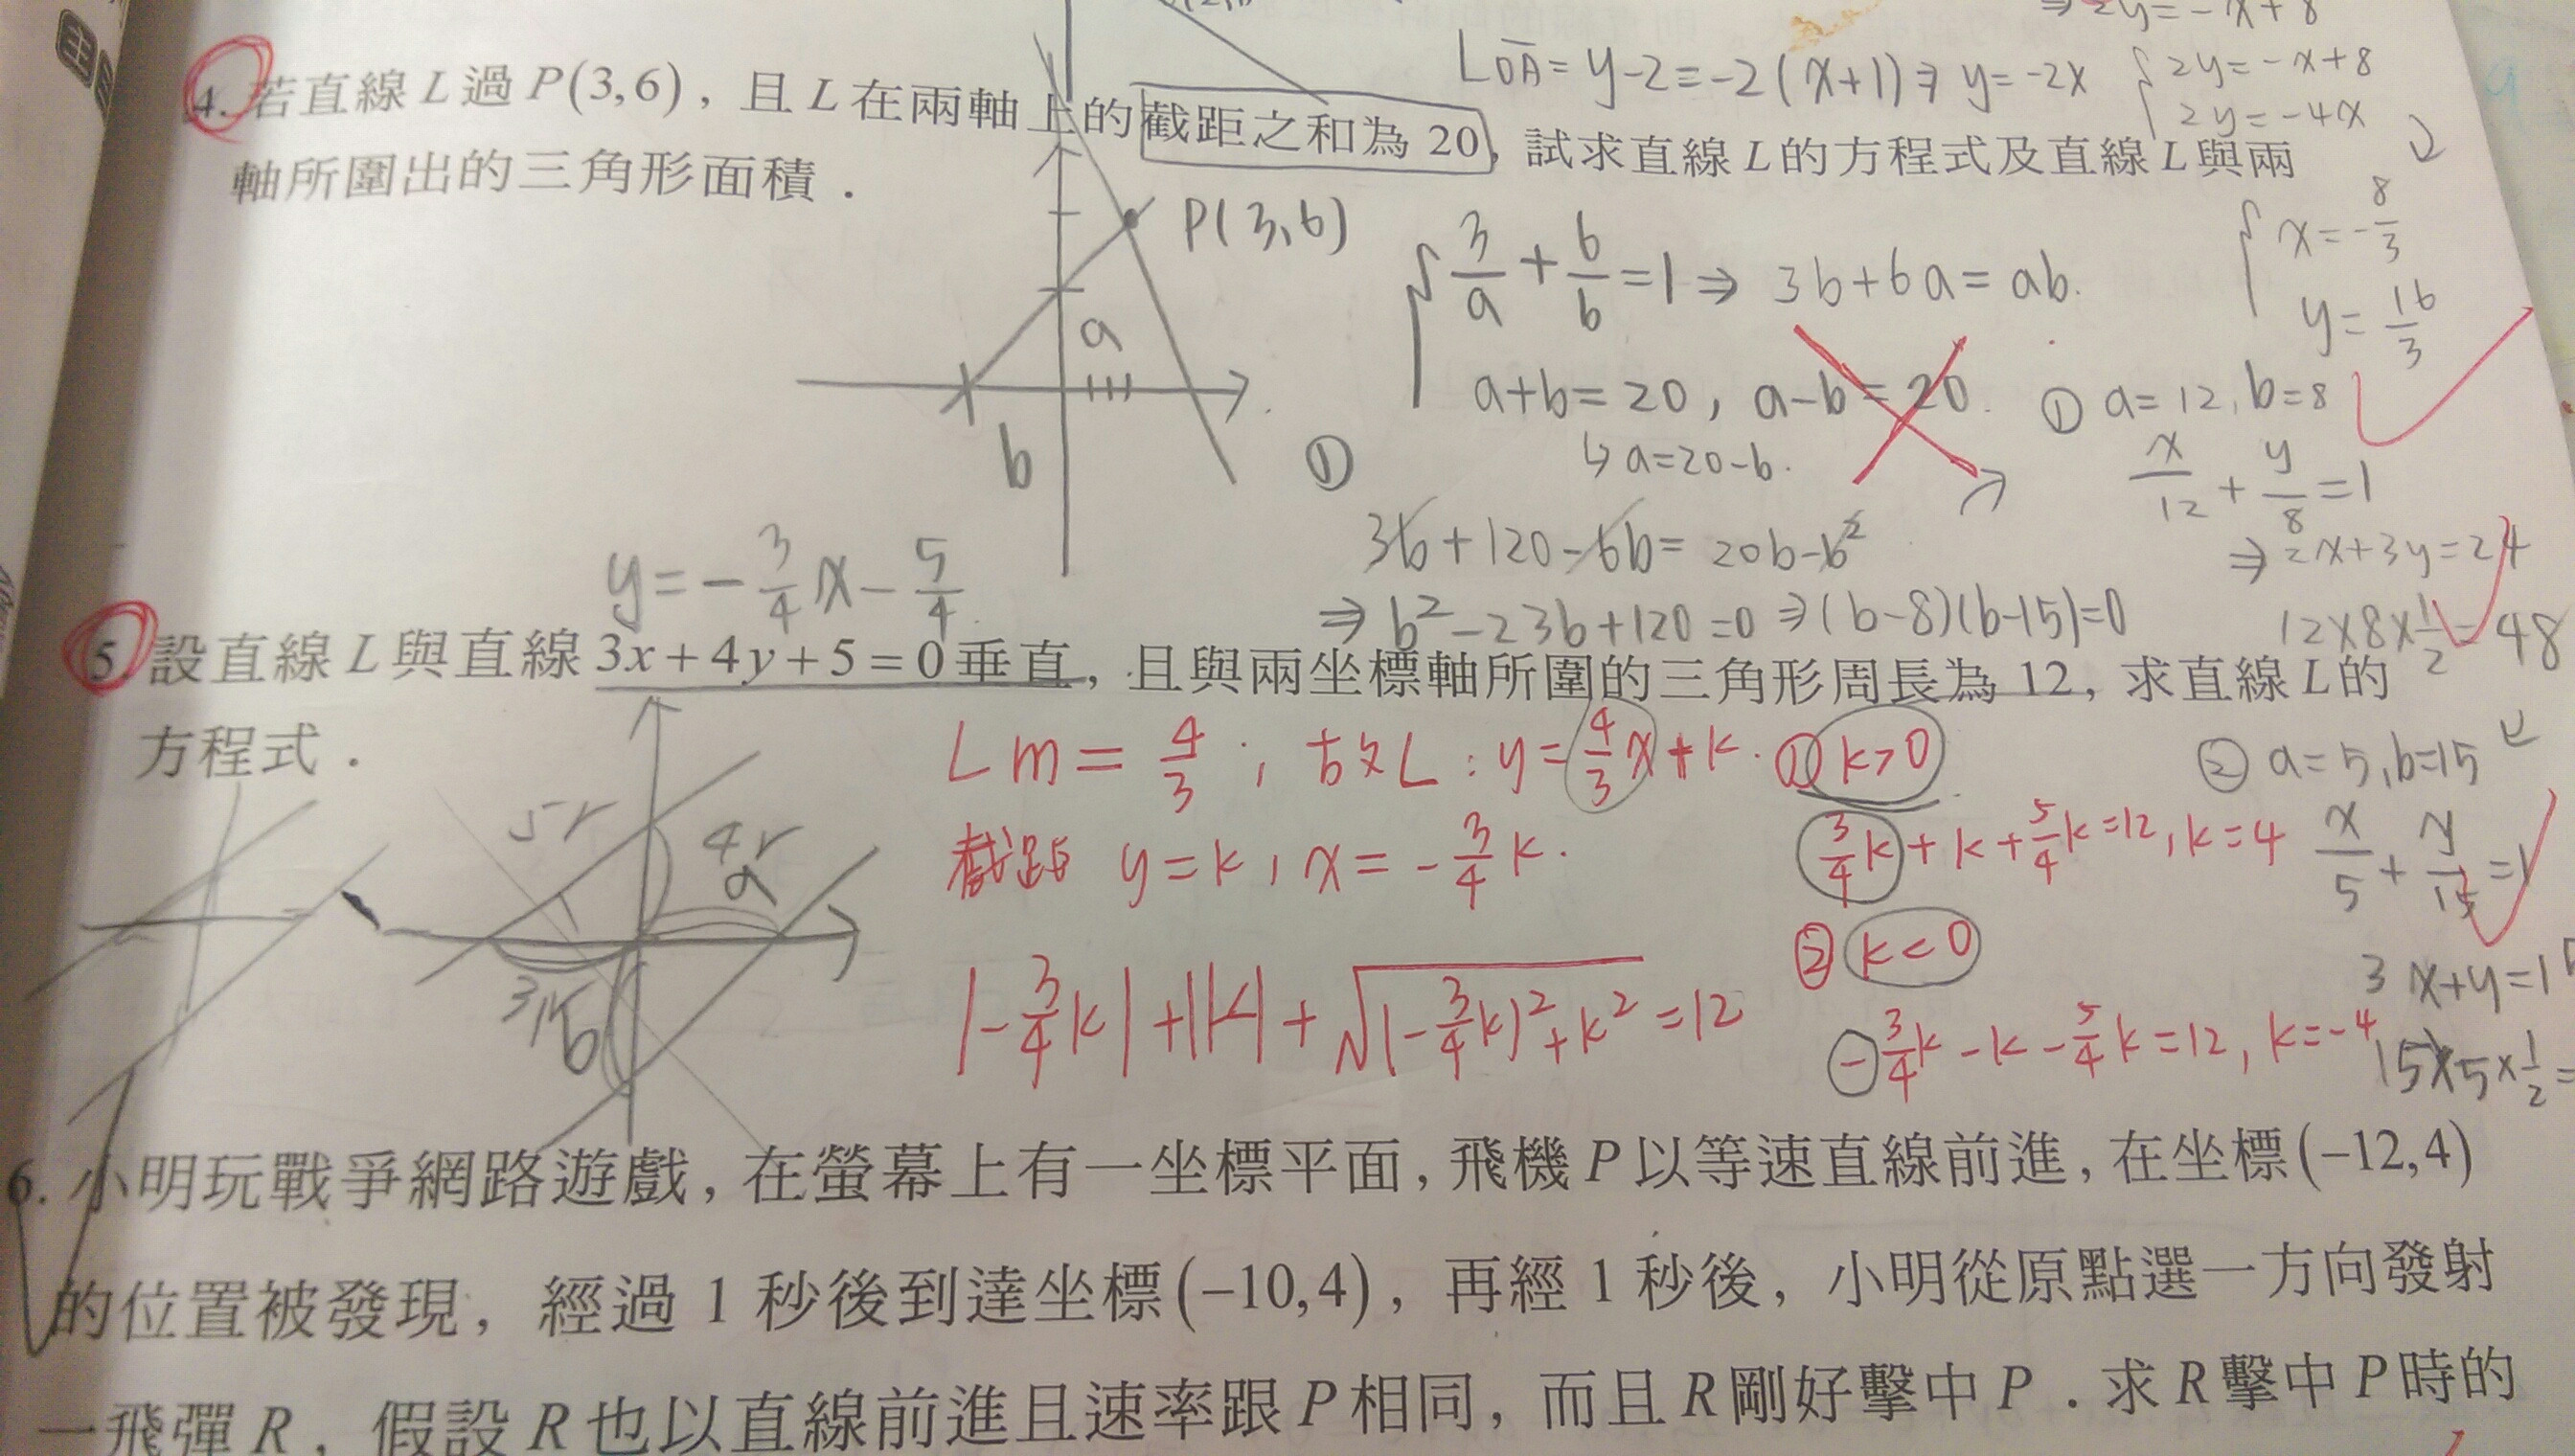 ⇒ 2y = -x + 8
4. 若直線 L 過 P(3,6)，且 L 在兩軸上的截距之和為 20，試求直線 L 的方程式及直線 L 與兩
軸所圍出的三角形面積．
L_OA = y-2 = -2(x+1) ⇒ y = -2x
2y = -x+8
2y = -4x
x = -8/3
y = 16/3
P(3,6)
a
b
3/a + 6/b = 1 ⇒ 3b+6a = ab.
a+b = 20, a-b = 20.
↳ a=20-b.
①
3b+120-6b = 20b-b²
⇒ b²-23b+120=0 ⇒ (b-8)(b-15)=0
① a=12, b=8
x/12 + y/8 = 1
⇒ 2x+3y=24
12×8×1/2 = 48
② a=5, b=15
x/5 + y/15 = 1
3x+y=1
15×5×1/2 =
y = -3/4 x - 5/4
5. 設直線 L 與直線 3x+4y+5=0 垂直，且與兩坐標軸所圍的三角形周長為 12，求直線 L 的
方程式．
5r
4r
a
3r
b
L m = 4/3 ; 故 L : y = 4/3 x + k. ① k>0
截距 y = k, x = -3/4 k.
3/4 k + k + 5/4 k = 12, k = 4
② k<0
|-3/4 k| + |k| + √((-3/4 k)² + k²) = 12
-3/4 k - k - 5/4 k = 12, k = -4
6. 小明玩戰爭網路遊戲，在螢幕上有一坐標平面，飛機 P 以等速直線前進，在坐標(-12,4)
的位置被發現，經過 1 秒後到達坐標(-10,4)，再經 1 秒後，小明從原點選一方向發射
一飛彈 R，假設 R 也以直線前進且速率跟 P 相同，而且 R 剛好擊中 P．求 R 擊中 P 時的